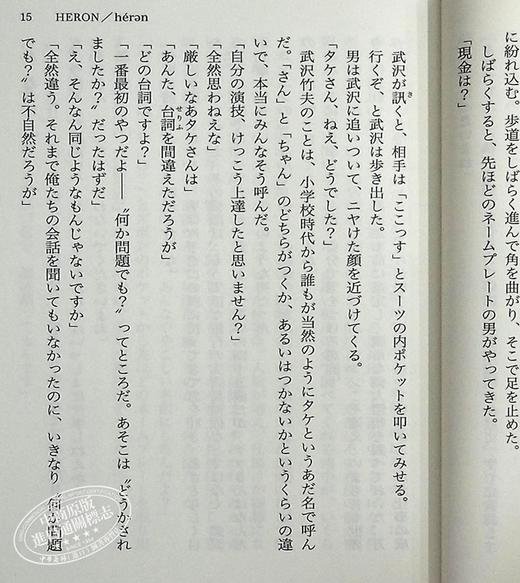 に紛れ込む。歩道をしばらく進んで角を曲がり、そこで足を止めた。
しばらくすると、先ほどのネームプレートの男がやってきた。
「現金は？」
15 HERON／hérən
武沢が訊くと、相手は「ここっす」とスーツの内ポケットを叩いてみせる。
行くぞ、と武沢は歩き出した。
男は武沢に追いついて、ニヤけた顔を近づけてくる。
「タケさん、ねえ、どうでした？」
武沢竹夫のことは、小学校時代から誰もが当然のようにタケというあだ名で呼ん
だ。「さん」と「ちゃん」のどちらがつくか、あるいはつかないかというくらいの違
いで、本当にみんなそう呼んだ。
「自分の演技、けっこう上達したと思いません？」
「全然思わねえな」
「厳しいなあタケさんは」
「あんた、台詞を間違えただろうが」
「どの台詞ですよ？」
「一番最初のやつだよ――〝何か問題でも？〟ってところだ。あそこは〝どうかされ
ましたか？〟だったはずだ」
「え、そんなん同じようなもんじゃないですか」
「全然違う。それまで俺たちの会話を聞いてもいなかったのに、いきなり〝何か問題
でも？〟は不自然だろうが」
中商原版
進口圖書